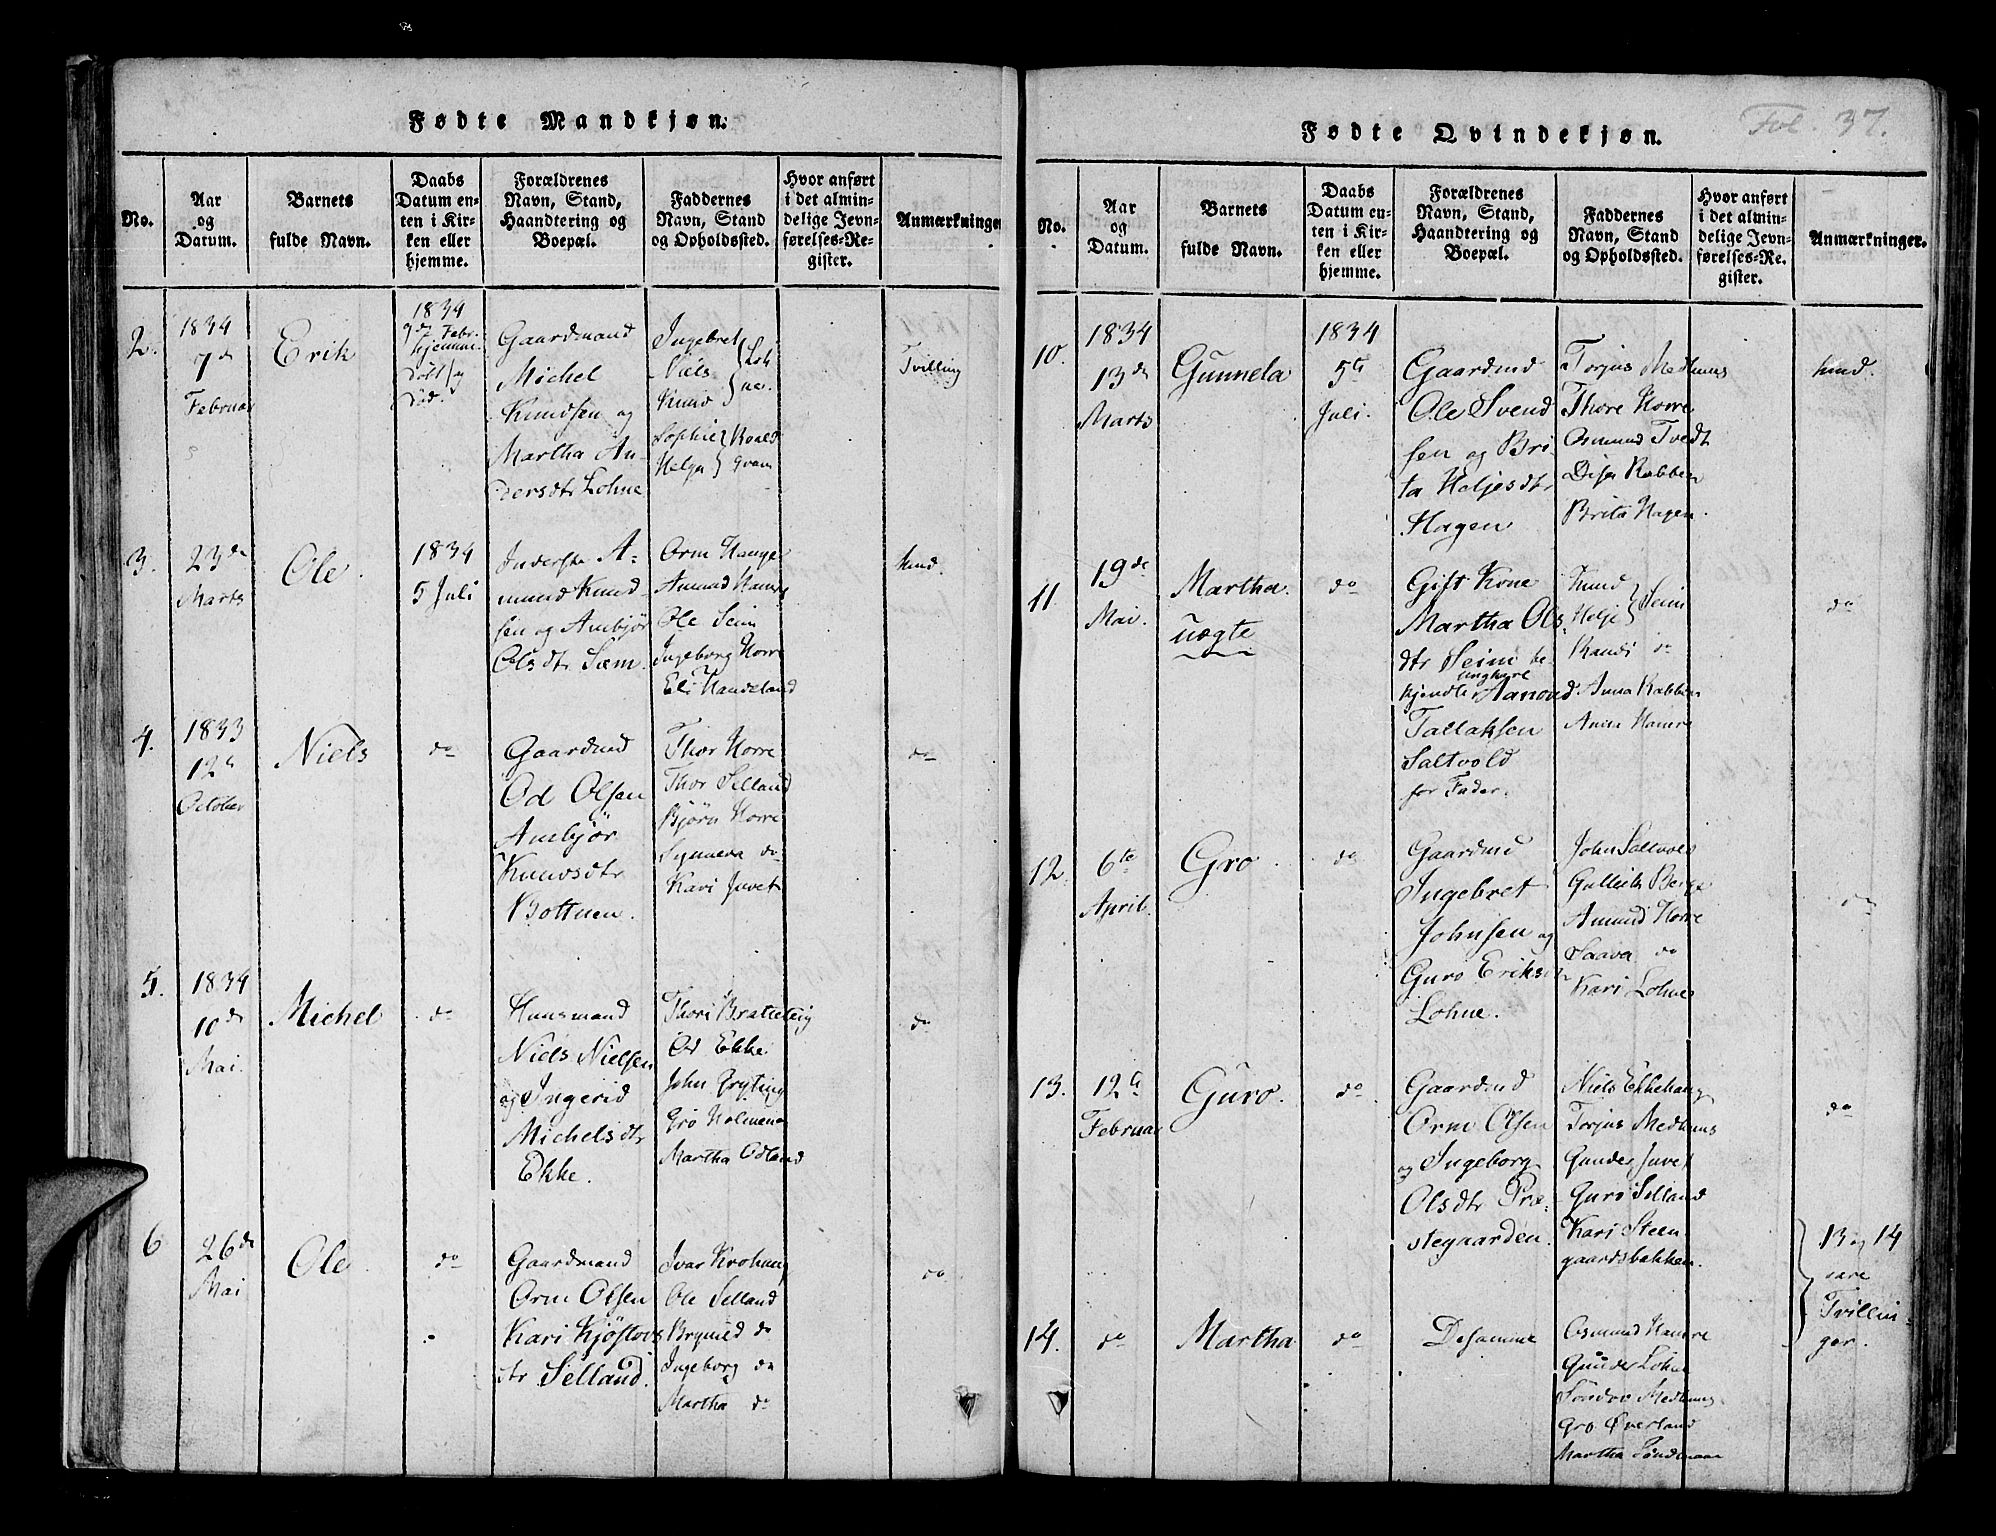 Fødte Mandkjøn.
No.
Aar
og
Datum.
Barnets
fulde Navn.
Daabs
Datum en-
ten i Kir-
ken eller
hjemme.
Forældrenes
Navn, Stand,
Haandtering og
Boepæl.
Faddernes
Navn, Stand
og Opholdssted.
Hvor anført
i det almin-
delige Jevn-
førelses-Re-
gister.
Anmærkninger
2.
1834
7de
Februar
Erik
1834
9de Febr.
hjemme-
døbt og
død.
Gaardmand
Michel
Knudsen og
Martha An-
dersdtr Lohne
Ingebret
Niels
Knud
Loh
ne.
Sophie
Helga
Roald
Qvam
Tvilling
3.
23de
Marts
Ole.
1834
5 Juli
Inderste A-
mund Knud
sen og Anbjør
Olsdtr Sæm.
Orm Hauge
Amund Hamre
Ole Seim
Ingeborg Horre
Eli Handeland
hmd.
4.
1833
12te
October
Niels
do
Gaardmd
Od Olsen
Anbjør
Knudsdtr
Bottnen.
Thor Horre
Thor Selland
Bjørn Horre
Synneva do
Kari Juvet
do
5.
1834
10de
Mai.
Michel
do
Huusmand
Niels Nielsen
og Ingerid
Michelsdtr
Ekke.
Thori Bratteteig
Od Ekke
John Fryting
Gro Holmene
Martha Odland
do
6
26de
Mai
Ole
do
Gaardmand
Orm Olsen
Kari Kjøstovs
dtr Selland.
Ivar Krohaug
Ole Selland
Brynild do
Ingeborg do
Martha do
do
Fødte Qvindekjøn.
Fol. 37.
No.
Aar
og
Datum.
Barnets
fulde Navn.
Daabs
Datum en-
ten i Kir-
ken eller
hjemme.
Forældrenes
Navn, Stand,
Haandtering og
Boepæl.
Faddernes
Navn, Stand
og Opholdssted.
Hvor anført
i det almin-
delige Jevn-
førelses-Re-
gister.
Anmærkninger.
10.
1834
13de
Marts
Gunnela
1834
5te
Juli.
Gaardmd
Ole Svend
sen og Bri
ta Heljesdtr
Hagen
Torjus Medhuus
Thore Horre
Osmund Tvedt
Disa Rabben
Brita Hagen.
hmd.
11
19de
Mai.
Martha
uægte
do
Gift Kone
Martha Ols
dtr Seim be-
ungkarl
kjendte Aanond
Tallaksen
Saltvold
for Fader.
Knud
Helje
Seim
Randi do
Anna Rabben
Anna Hamre
do
12.
6te
April.
Gro
do
Gaardmd
Ingebret
Johnsen og
Guro Eriksdtr
Lohne.
John Saltvold
Gullik Berge
Amund Horre
Saava do
Kari Lohne
do
13.
12te
Februar
Guro.
do
Gaardmd
Orm Olsen
og Ingeborg
Olsdtr Præ-
stegaarden.
Niels Ekkehaug
Torjus Medhuus
Gunder Juvet
Guro Selland
Kari Steen
gaardsbakken.
do
13 og 14
vare
Tvillin-
ger.
14.
do
Martha
do
Desamme
Osmund Hamre
Gunder Lohne
Søndov Medhuus
Gro Øverland
Martha Søndenaa